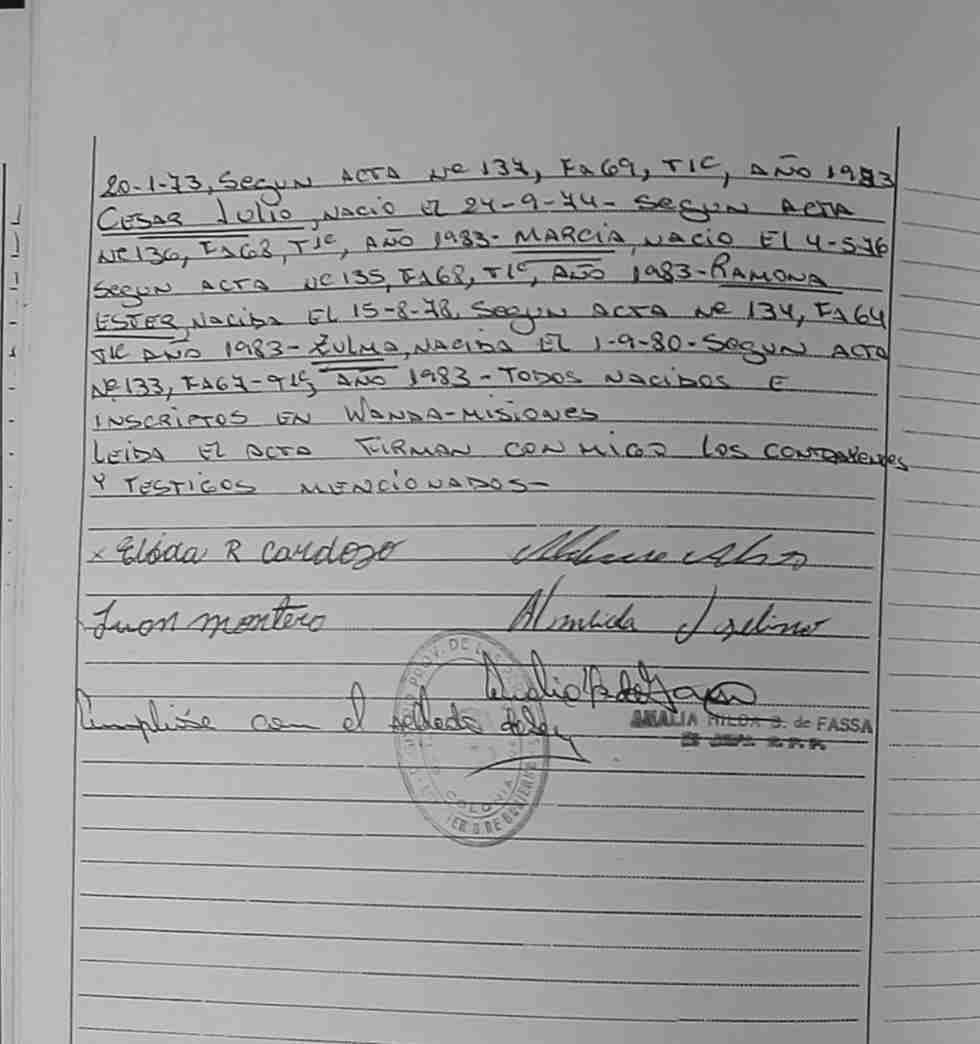 20-1-73, Segun ACTA Nº 137, Fº 69, T1C, AÑO 1983
CESAR Julio, NACIO El 24-9-74- Segun ACTA
Nº 136, Fº 68, T1C, AÑO 1983- MARCIA, NACIO El 4-5-76
Segun ACTA Nº 135, Fº 68, T1C, AÑO 1983- RAMONA
ESTER, Nacida El 15-8-78, Segun ACTA Nº 134, Fº 64
T1C AÑO 1983- ZULMA, NACIDA El 1-9-80- Segun ACTA
Nº 133, Fº 67- T1C, AÑO 1983- TODOS NACIDOS E
INSCRIPTOS EN WANDA-MISIONES
LEIDA El ACTA FIRMAN CONMIGO LOS CONTRAYENTES
Y TESTIGOS MENCIONADOS-
x Elóda R Cardozo
Juan montero Almeida
Cumplióse con el sellado de ley
ANALIA HILDA B. de FASSA
PROV. DE
COLONIA